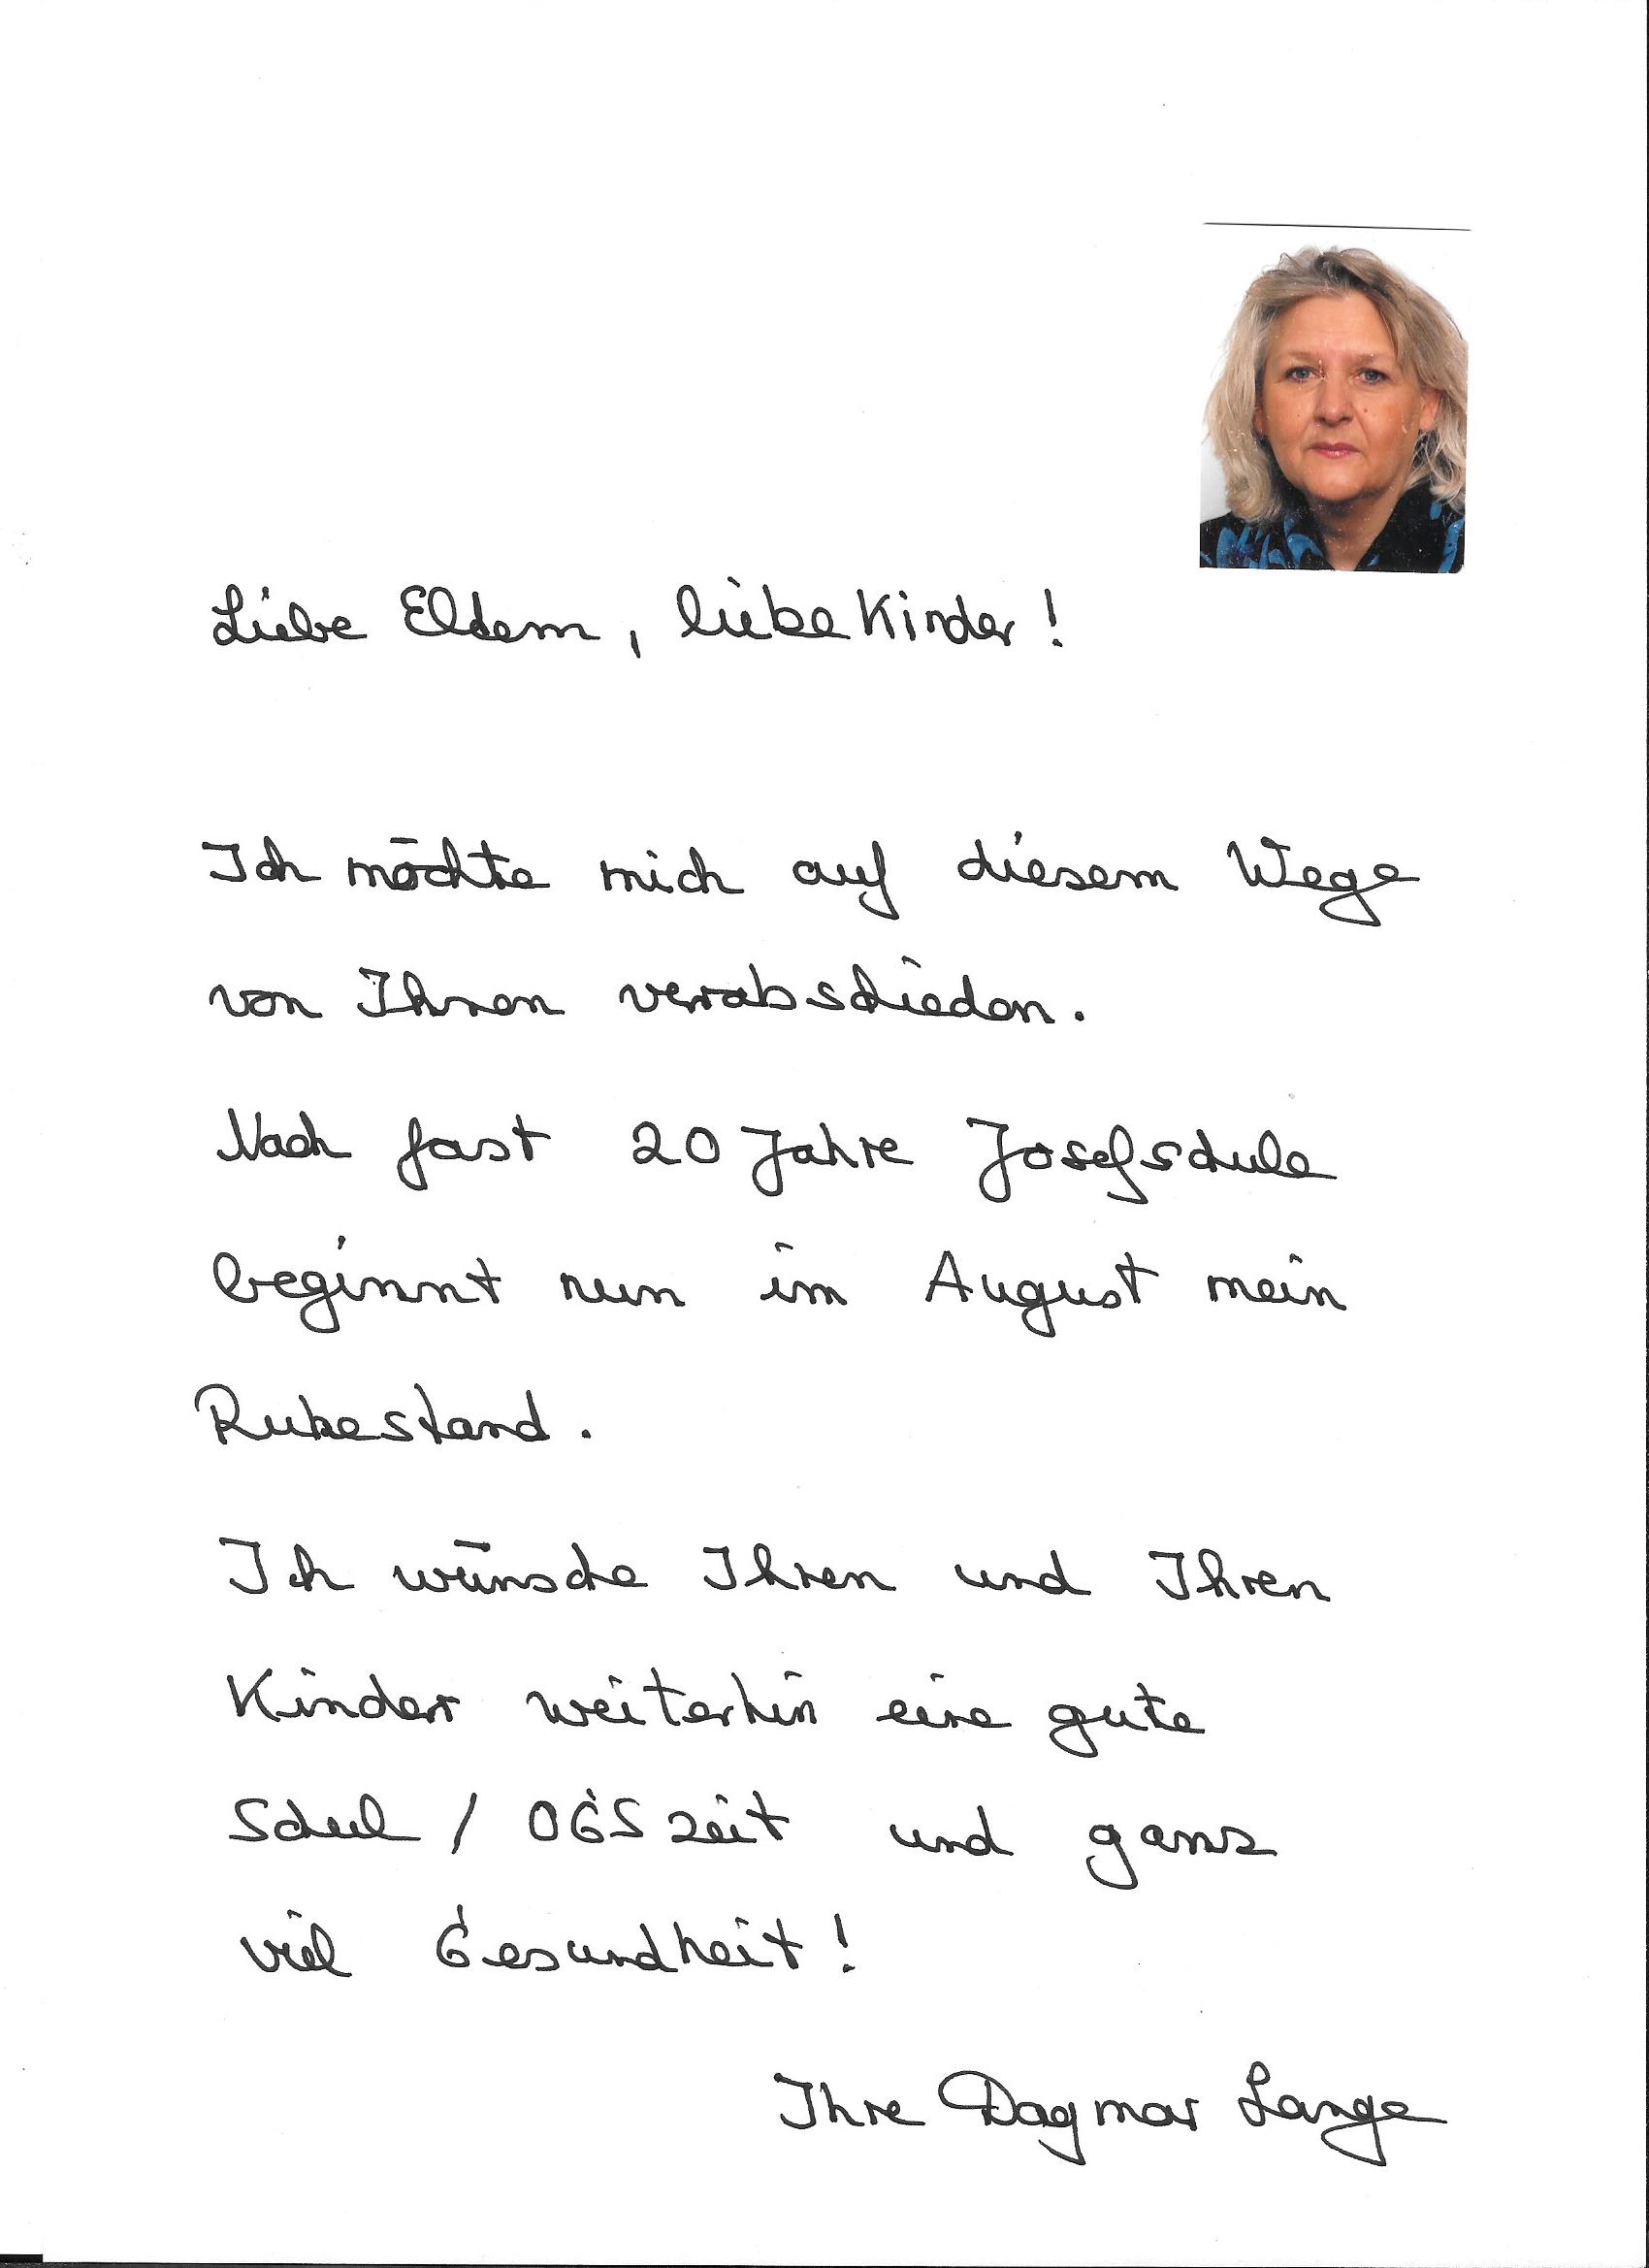 Liebe Eltern, liebe Kinder!
Ich möchte mich auf diesem Wege
von Ihnen verabschieden.
Nach fast 20 Jahre Josefschule
beginnt nun im August mein
Ruhestand.
Ich wünsche Ihnen und Ihren
Kinder weiterhin eine gute
Schul / OGS zeit und ganz
viel Gesundheit!
Ihre Dagmar Lange